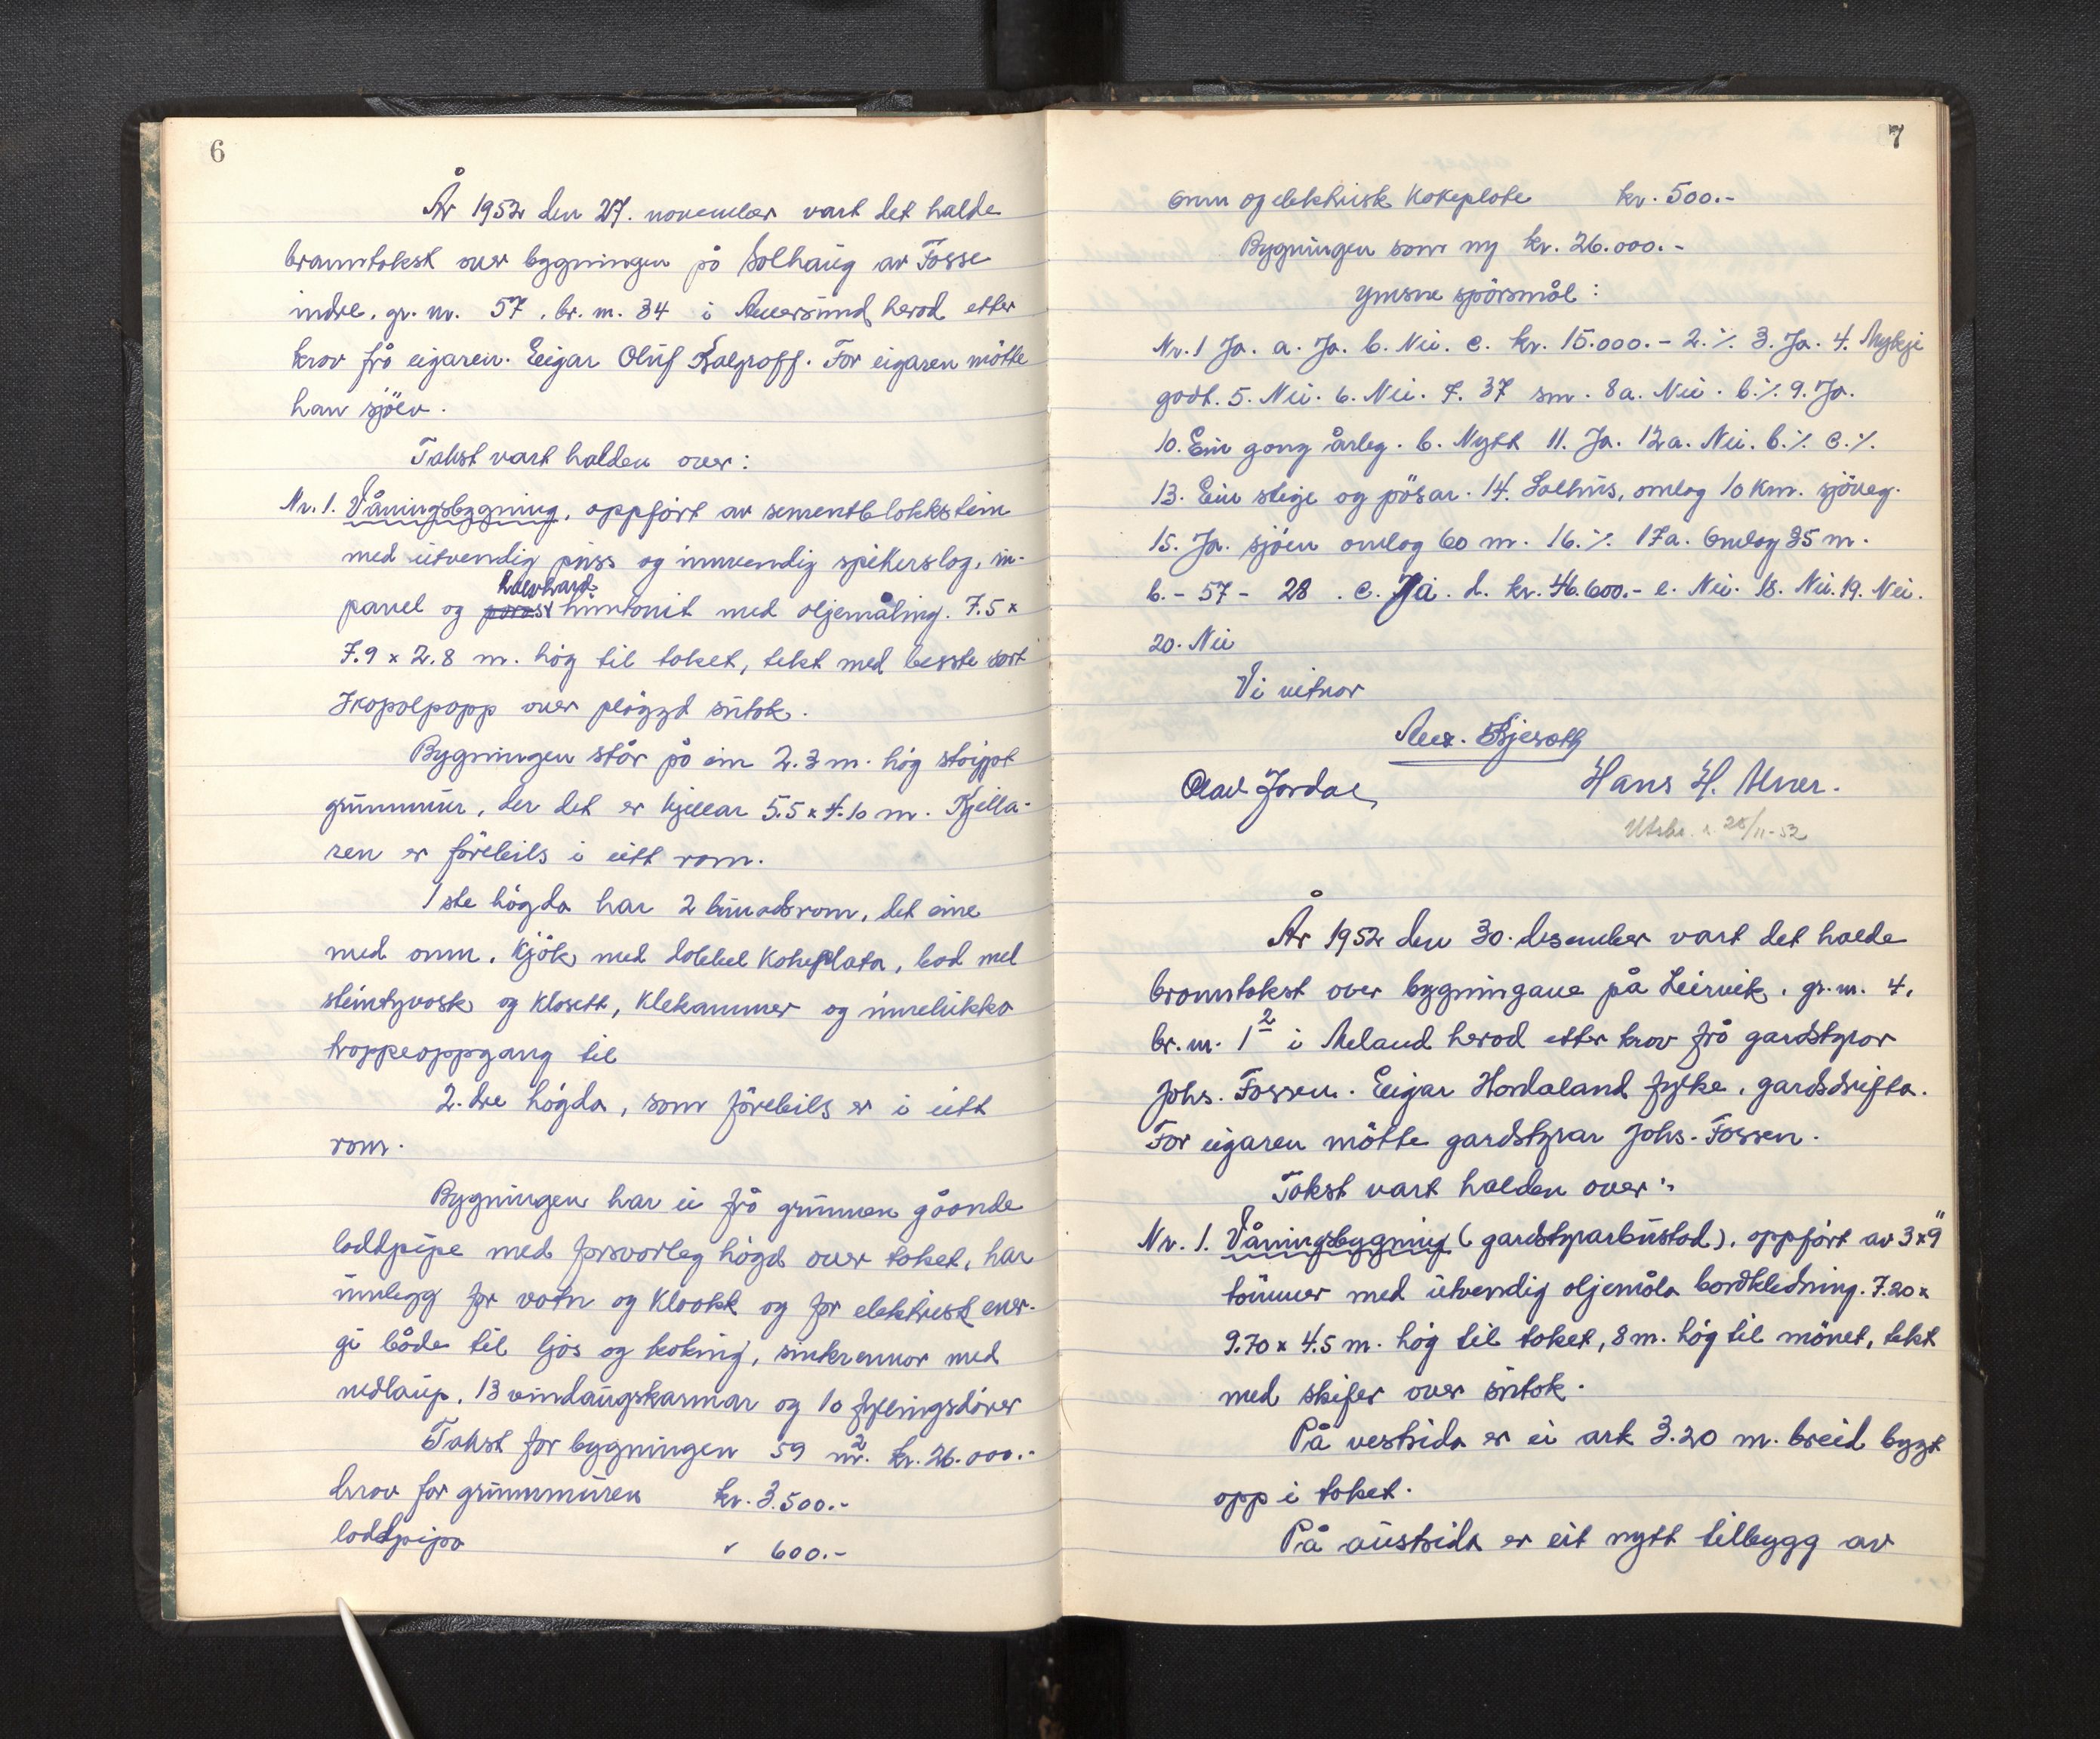 6
År 1952 den 27. november vart det halde
branntakst over bygningen på Solhaug av Fosse
indre, gr. nr. 57, br. nr. 34 i Alversund herad etter
krav frå eigaren. Eigar Oluf Kalgraff. For eigaren møtte
han sjølv.
Takst vart halden over:
Nr. 1. Våningsbygning, oppført av sementblokkstein
med utvendig puss og innvendig spikerslag, in-
halvhard
panel og porøst huntonit med oljemåling. 7.5 x
7.9 x 2.8 m. høg til taket, tekt med beste sort
Icopalpapp over pløggd sutak.
Bygningen står på ein 2.3 m. høg støypt
grunnmur, der det er kjellar 5.5 x 4.10 m. Kjella-
ren er førebils i eitt rom.
1ste høgda har 2 bunadsrom, det eine
med omn, kjøk med dobbel kokeplata, bad med
steintyvask og klosett, klekammer og innelukka
trappeoppgang til
2. dre høgda, som førebils er i eitt
rom.
Bygningen har ei frå grunnen gåande
loddpipe med forsvarleg høgd over taket, har
innlegg for vatn og kloakk og for elektrisk ener-
gi både til ljos og koking, sinkrennor med
nedlaup, 13 vindaugskarmar og 10 fyllingsdører
Takst for bygningen 59 m². kr. 26.000.-
hrav for grunnmuren kr. 3.500.-
loddpipa " 600.-
7
omn og elektrisk kokeplate kr. 500.-
Bygningen som ny kr. 26.000.-
Ymsne spörsmål:
Nr. 1 Ja. a. Ja. b. Nei. c. kr. 15.000.- 2. ٪ 3. Ja. 4. Mykje
godt. 5. Nei. 6. Nei. 7. 37 sm. 8a. Nei. b. ٪ 9. Ja.
10. Ein gong årleg. b. Nytt 11. Ja. 12a. Nei. b. ٪ c. ٪.
13. Ein stige og pøsar. 14. Salhus, omlag 10 km. sjøveg.
15. Ja. sjøen omlag 60 m. 16. ٪ 17a. Omlag 35 m.
b. - 57 - 28 . c. Nei . d. kr. 46.600.- e. Nei. 18. Nei. 19. Nei.
20. Nei
Vi vitnar
Olav Jordal Hans H. Alver.
25/11-52
År 1952 den 30. desember vart det halde
branntakst over bygningane på Leirvik, gr. nr. 4,
br. nr. 1² i Meland herad etter krav frå gardstyrar
Johs. Fossen. Eigar Hordaland fylke, gardsdrifta.
For eigaren møtte gardstyrar Johs. Fossen.
Takst vart halden over:
Nr. 1. Våningsbygning (gardstyrarbustad), oppført av 3x9"
tømmer med utvendig oljemåla bordkledning. 7.20 x
9.70 x 4.5 m. høg til taket, 8 m. høg til mønet, tekt
med skifer over sutak.
På vestsida er ei ark 3.20 m. breid bygt
opp i taket.
På austsida er eit nytt tilbygg av